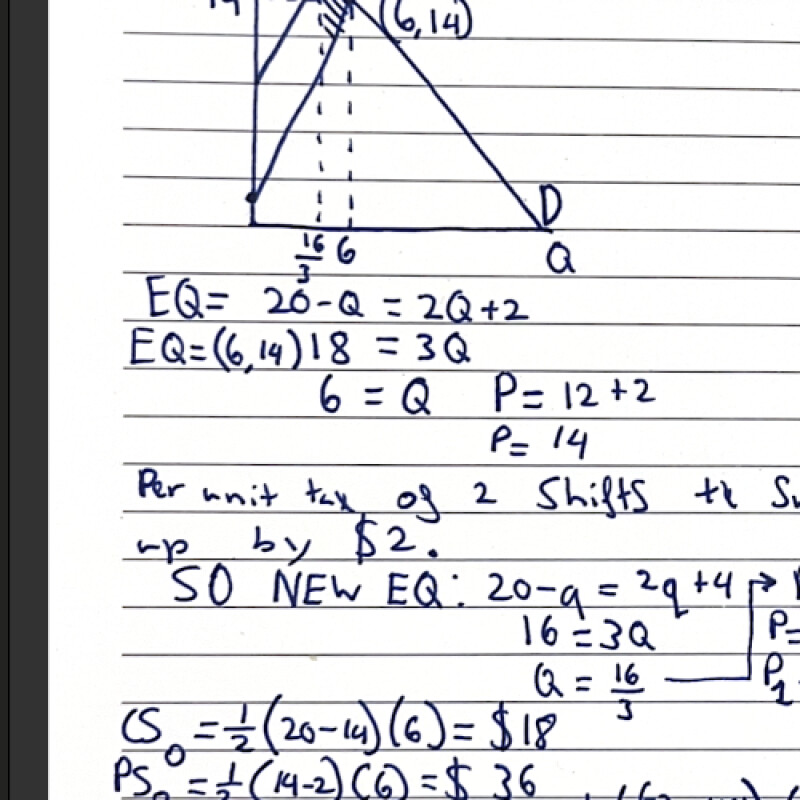 (6,14)
D
16/3 6 Q
EQ= 20-Q = 2Q+2
EQ=(6,14) 18 = 3Q
6 = Q P= 12+2
P= 14
Per unit tax of 2 shifts the
up by $2.
SO NEW EQ: 20-q = 2q+4 →
16 = 3Q P=
Q = 16/3 P1
CS0 = 1/2(20-14)(6) = $18
PS0 = 1/2(14-2)(6) = $ 36